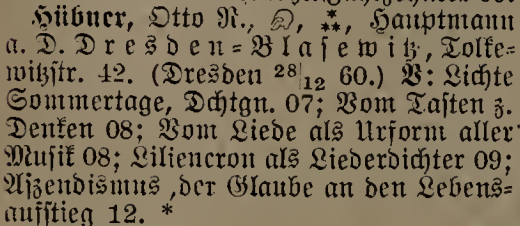 Hübner, Otto R., ⁂, Hauptmann
a. D. Dresden=Blasewitz, Tolke=
witzstr. 42. (Dresden 28/12 60.) V: Lichte
Sommertage, Dchtgn. 07; Vom Tasten z.
Denken 08; Vom Liede als Urform aller
Musik 08; Liliencron als Liederdichter 09;
Aszendismus ,der Glaube an den Lebens=
aufstieg 12. *